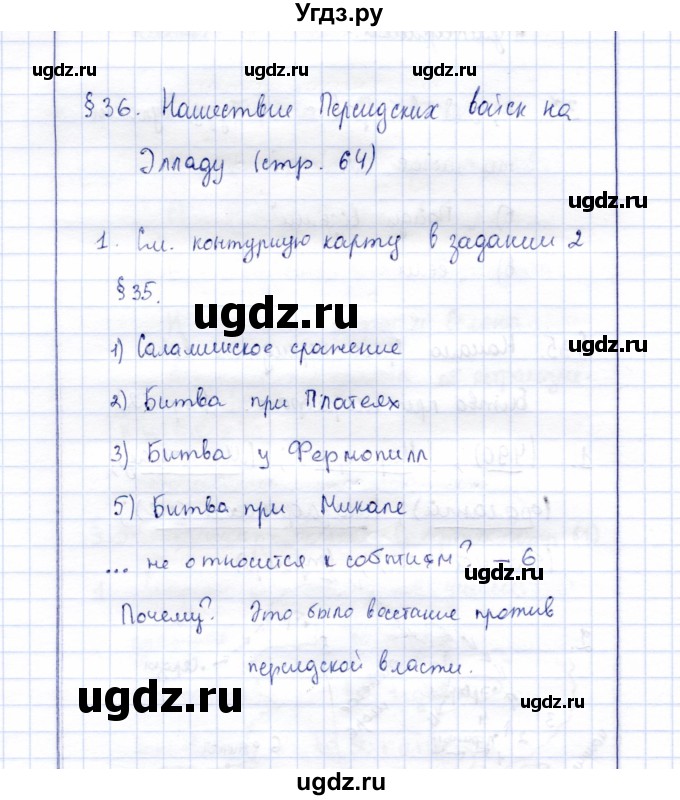 Угдз.ру
ugdz.ru ugdz.ru ugdz.ru
§ 36. Нашествие Персидских войск на
Элладу (стр. 64)
ugdz.ru
1. См. контурную карту в задании 2
§ 35.
ugdz.ru
1) Саламинское сражение
ugdz.ru
2) Битва при Платеях
3) Битва у Фермопилл
5) Битва при Микале
... не относится к событиям? – 6
ugdz.ru
Почему? Это было восстание против
персидской власти.
ugdz.ru
ugdz.ru
ugdz.ru